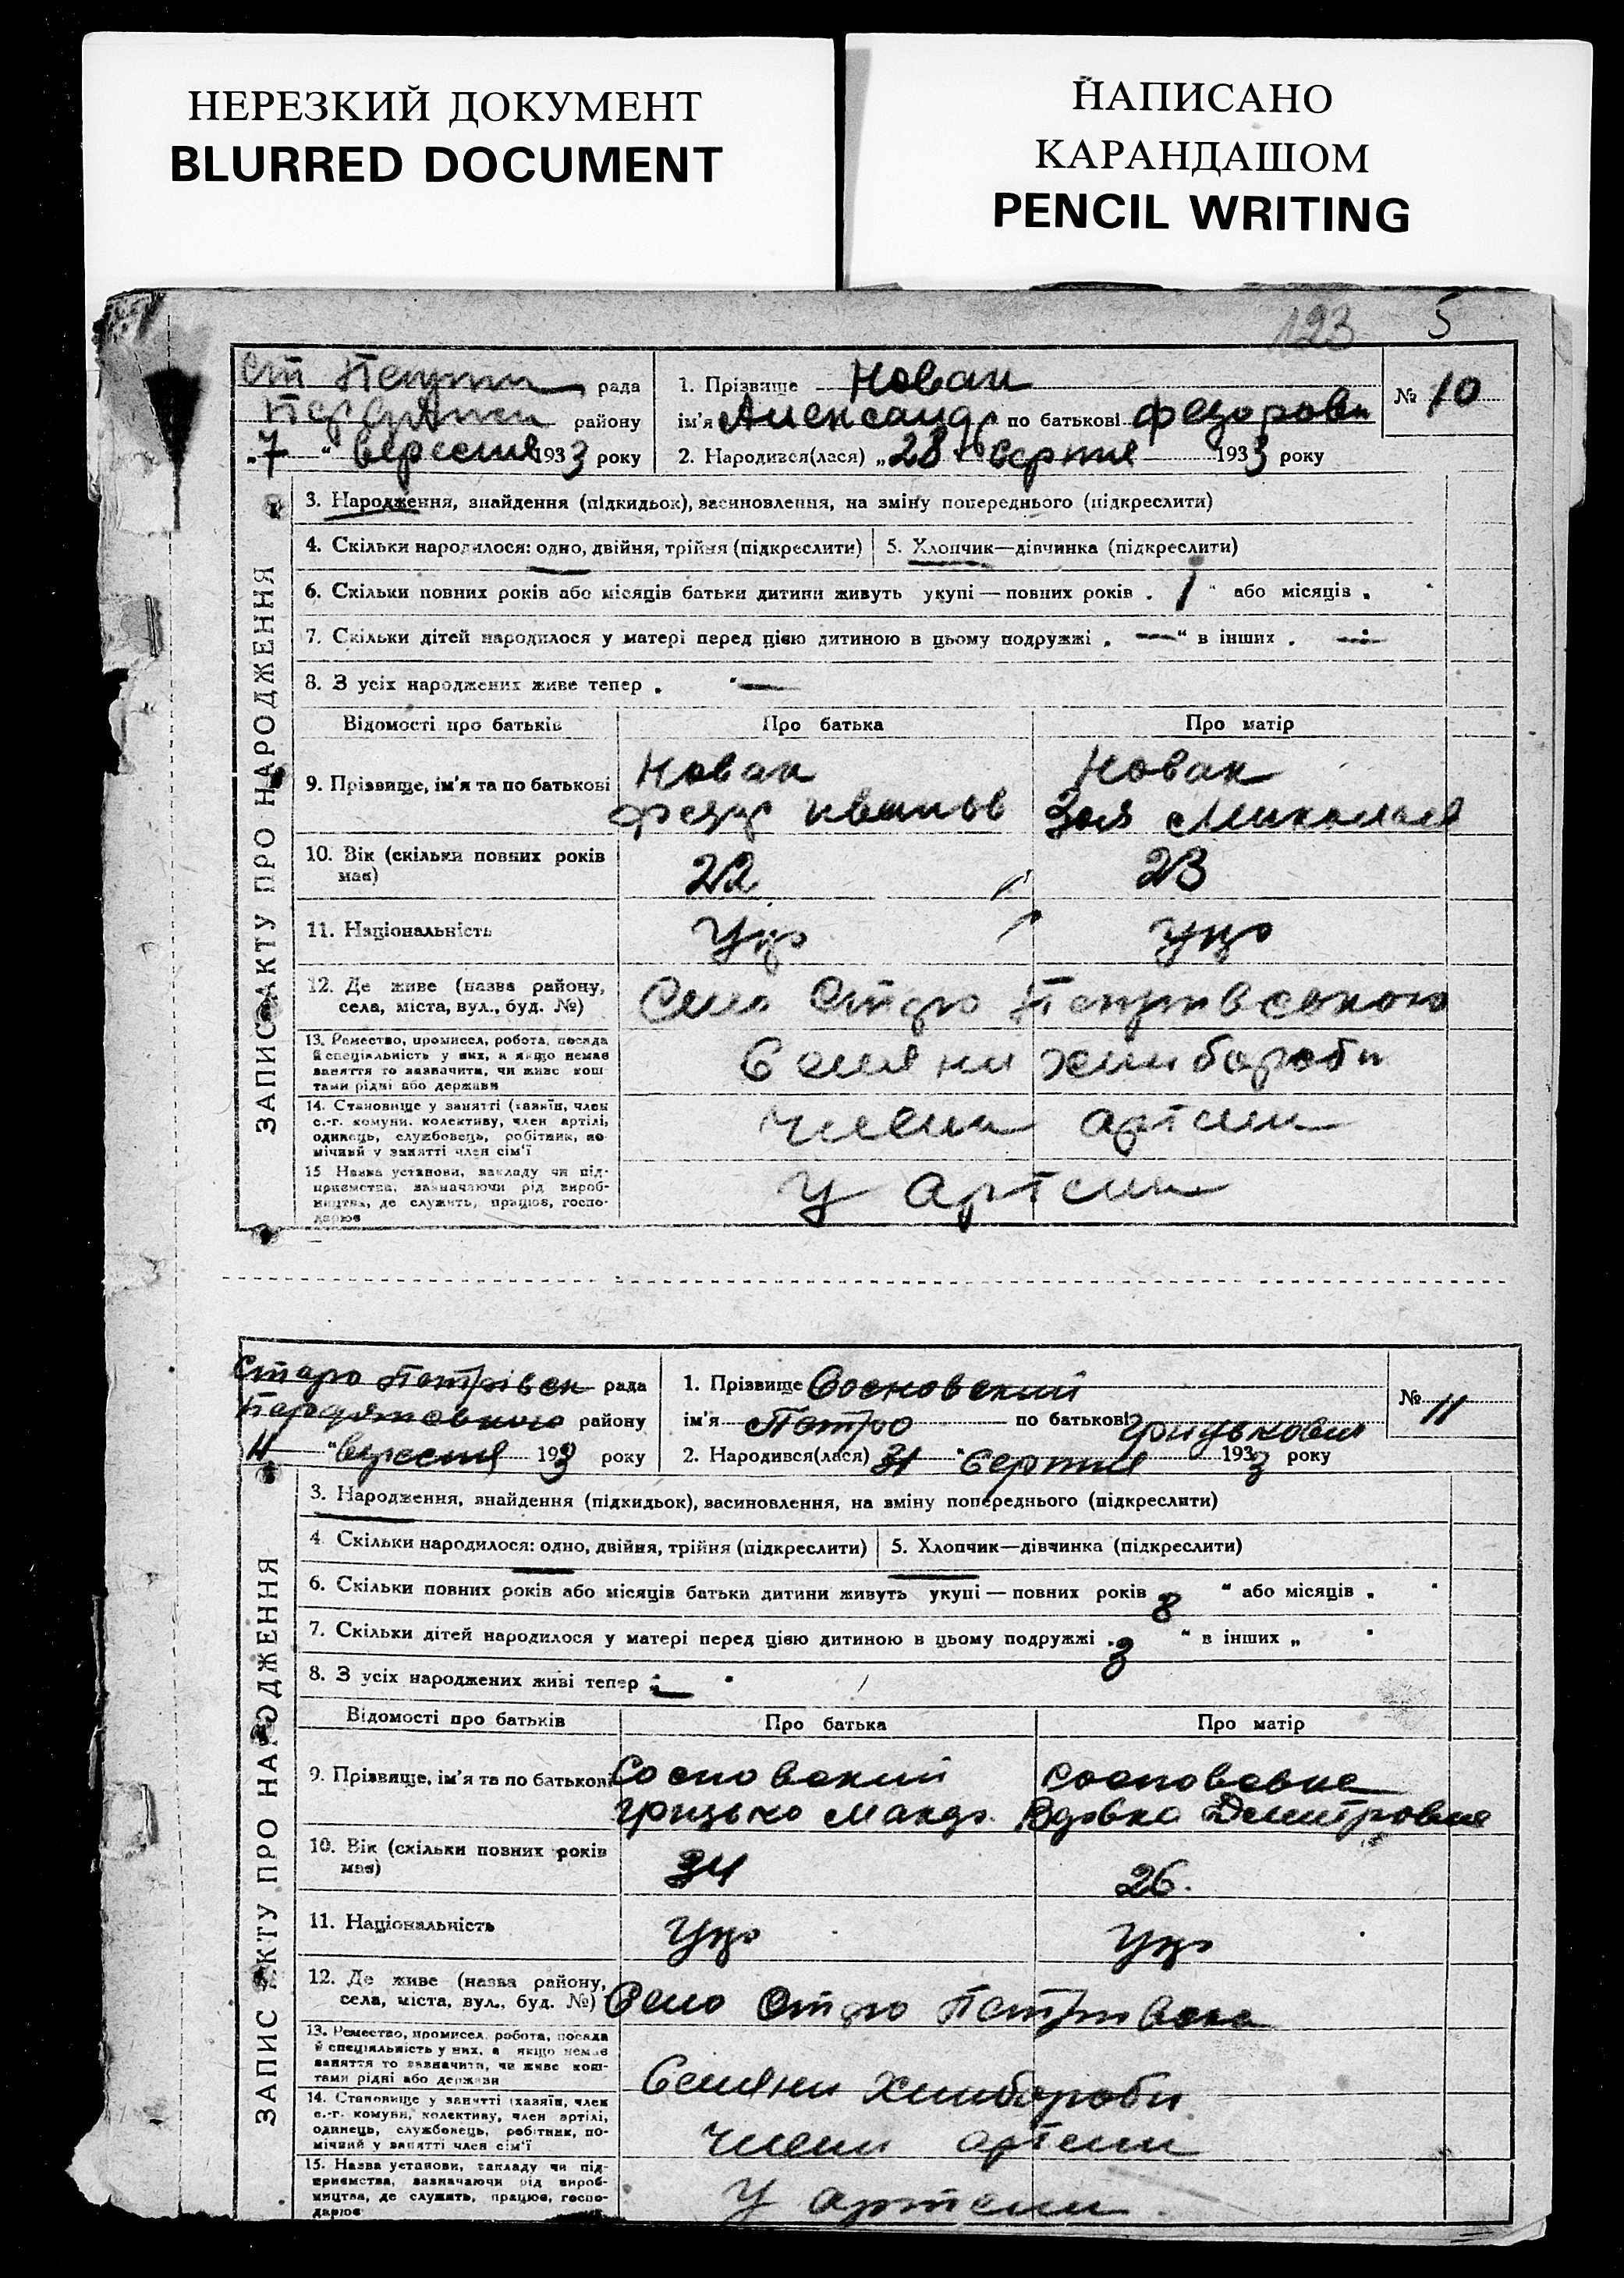 НЕРЕЗКИЙ ДОКУМЕНТ
BLURRED DOCUMENT
НАПИСАНО
КАРАНДАШОМ
PENCIL WRITING
123 5
ЗАПИС АКТУ ПРО НАРОДЖЕННЯ
рада
району
„7“ вересня 1933 року
1. Прізвище Новак
ім'я Александр по батькові Федорови
№ 10
2. Народився(лася) „28“ серпня 1933 року
3. Народження, знайдення (підкидьок), васиновлення, на зміну попереднього (підкреслити)
4. Скільки народилося: одно, двійня, трійня (підкреслити) 5. Хлопчик—дівчинка (підкреслити)
6. Скільки повних років або місяців батьки дитини живуть укупі — повних років „1“ або місяців „
7. Скільки дітей народилося у матері перед цією дитиною в цьому подружжі „—“ в інших „ —
8. З усіх народжених живе тепер „ —
Відомості про батьків Про батька Про матір
9. Прізвище, ім'я та по батькові
Новак Новак
10. Вік (скільки повних років має) 22 23
11. Національність Укр Укр
12. Де живе (назва району,
села, міста, вул., буд. №)
Село Стар
13. Ремество, промисел, робота, посада
й спеціяльність у них, а якщо немає
заняття то зазначити, чи живе кош-
тами рідні або держави
Селяни хлибороби
14. Становище у занятті (хазяїн, член
с.-г. комуни, колективу, член артілі,
одинець, службовець, робітник, по-
мічний у занятті член сім'ї
члени артели
15 Назва установи, закладу чи під-
приємства, зазначаючи рід вироб-
ництва, де служить, працює, госпо-
дарює
У Артели
ЗАПИС АКТУ ПРО НАРОДЖЕННЯ
Старо Петрівск рада
району
11 “вересня 1933 року
1. Прізвище Сосновский
ім'я Петро по батькові Грицькович
№ 11
2. Народився(лася) 31 “Серпня 1933 року
3. Народження, знайдення (підкидьок), васиновлення, на зміну попереднього (підкреслити)
4 Скільки народилося: одно, двійня, трійня (підкреслити) 5. Хлопчик—дівчинка (підкреслити)
6. Скільки повних років або місяців батьки дитини живуть укупі — повних років 8 “ або місяців „
7. Скільки дітей народилося у матері перед цією дитиною в цьому подружжі „3 “ в інших „
8. З усіх народжених живі тепер
Відомості про батьків Про батька Про матір
9. Прізвище, ім'я та по батькові
Сосновский
Грицько Дмитровна
10. Вік (скільки повних років має) 34 26.
11. Національність Укр Укр
12. Де живе (назва району,
села, міста, вул., буд. №)
Село Стар Петривска
13. Ремество, промисел, робота, посада
й спеціяльність у них, а якщо немає
заняття то зазначити, чи живе кош-
тами рідні або держави
Селяни Хлибороби
14. Становище у занятті (хазяїн, член
с.-г. комуни, колективу, член артілі,
одинець, службовець, робітник, по-
мічний у занятті член сім'ї
члени артели
15. Назва установи, закладу чи під-
приємства, зазначаючи рід вироб-
ництва, де служить, працює, госпо-
дарює
У артели